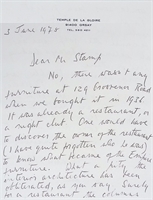 TEMPLE DE LA GLOIRE
91400 ORSAY
3 June 1975
Dear Mr Stamp
No, there wasn't any
furniture at 129 Grosvenor Road
when we bought it in 1936
It was already a restaurant, or
a night club. One would have
to discover the owner of the restaurant
(I have quite forgotten who he was)
to know what became of the Empire
furniture. What a pity the
interior architecture has been
obliterated, as you say. Surely
for a restaurant, the columns